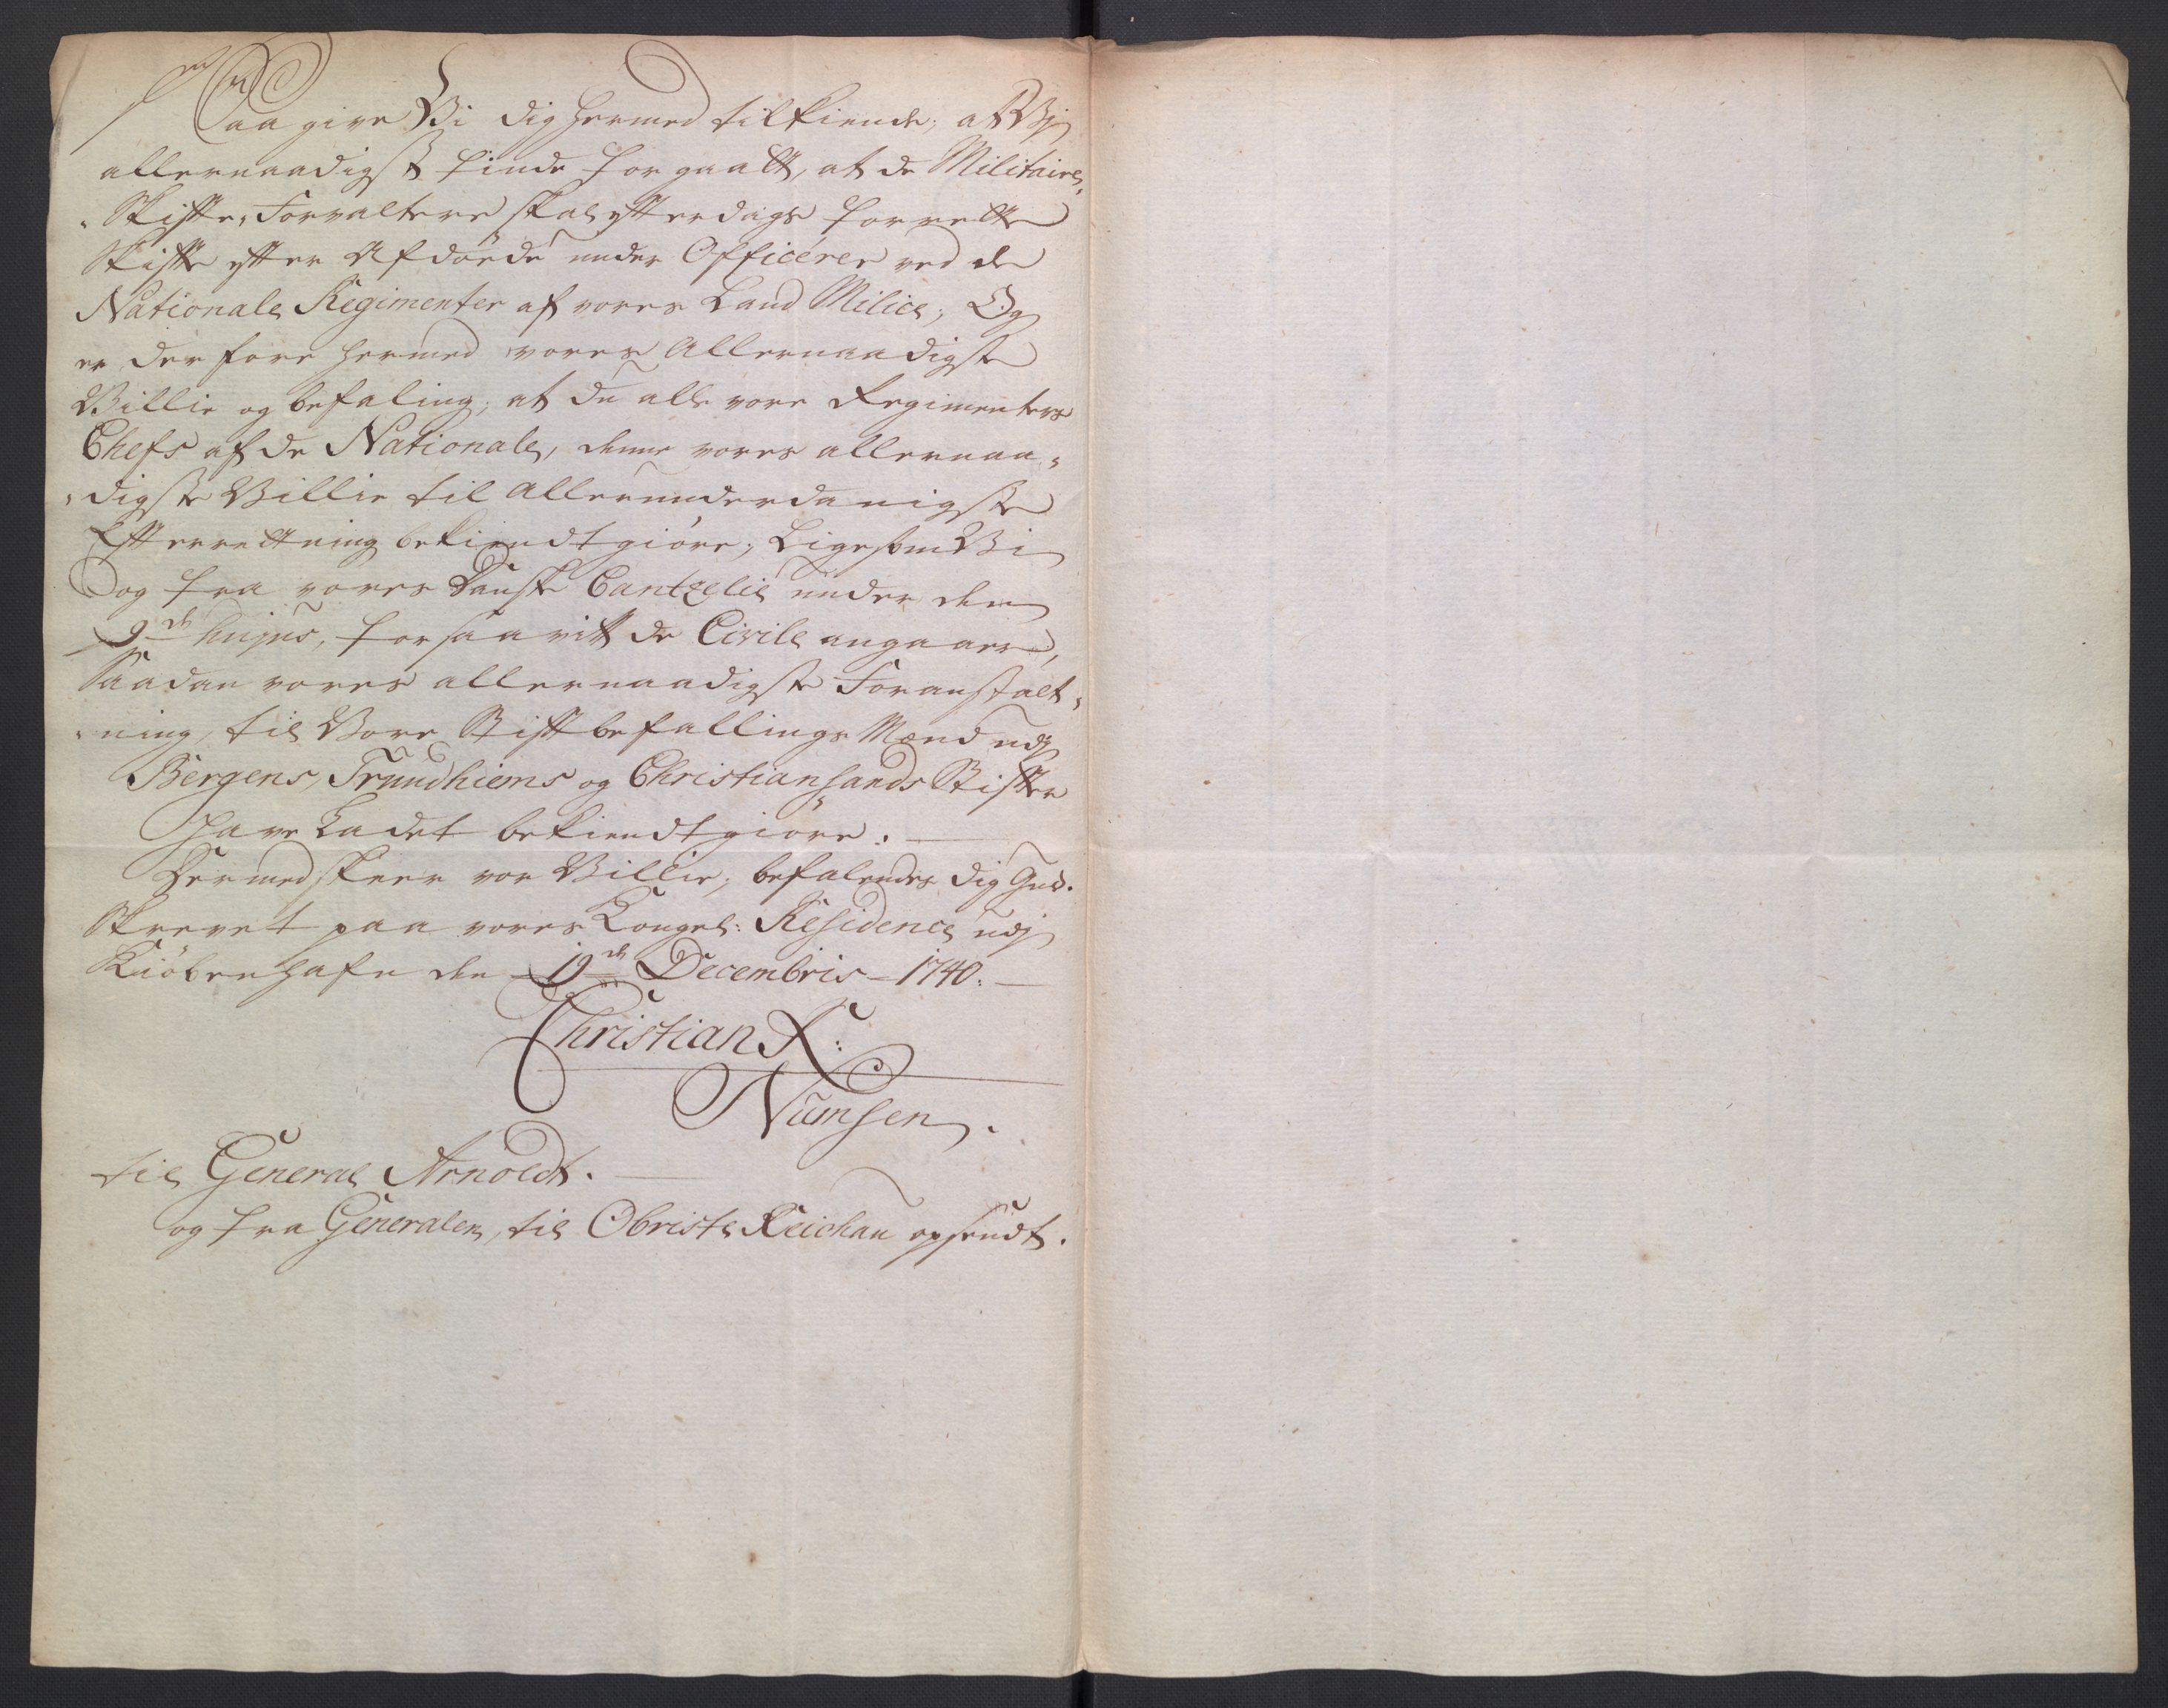 Saa give Vi dig hermed tilkiende; at Vj
allernaadigst finde for gaatt, at de Militaire,,
,,Skifte,, Forvaltere skal efterdags forrette
Skifte efter Afdøede under Officérer ved de
Nationale Regimenter af vores Land Milice; Og
er derfore hermed vores Allernaadigste
Villie og befaling; at du alle vore Regimenters
Chefs af de Nationale, denne vores allernaa,,
,,digste Villie til allerunderdanigste
Efterrettning bekiendtgiøre; Ligesom Vi
og fra vores Danske Cantzelie under den
9de hujus, forsaavitt de Civile angaaer,
Saadan vores allernaadigste Foranstalt,,
,,ning, til Vore Stiftbefallings Mænd udj
Bergens, Trundhiems og Christiansands Stifter
have Ladet bekiendtgiøre.
Hermed skeer vor Villie; befalendes dig Gud.
Skrevet paa vores Kongel: Residence udj
Kiøbenhafn den 19de Decembris 1740.
Christian R:
Numsen.
til General Arnoldt.
og fra Generalen, til Obriste Reichau opsendt.